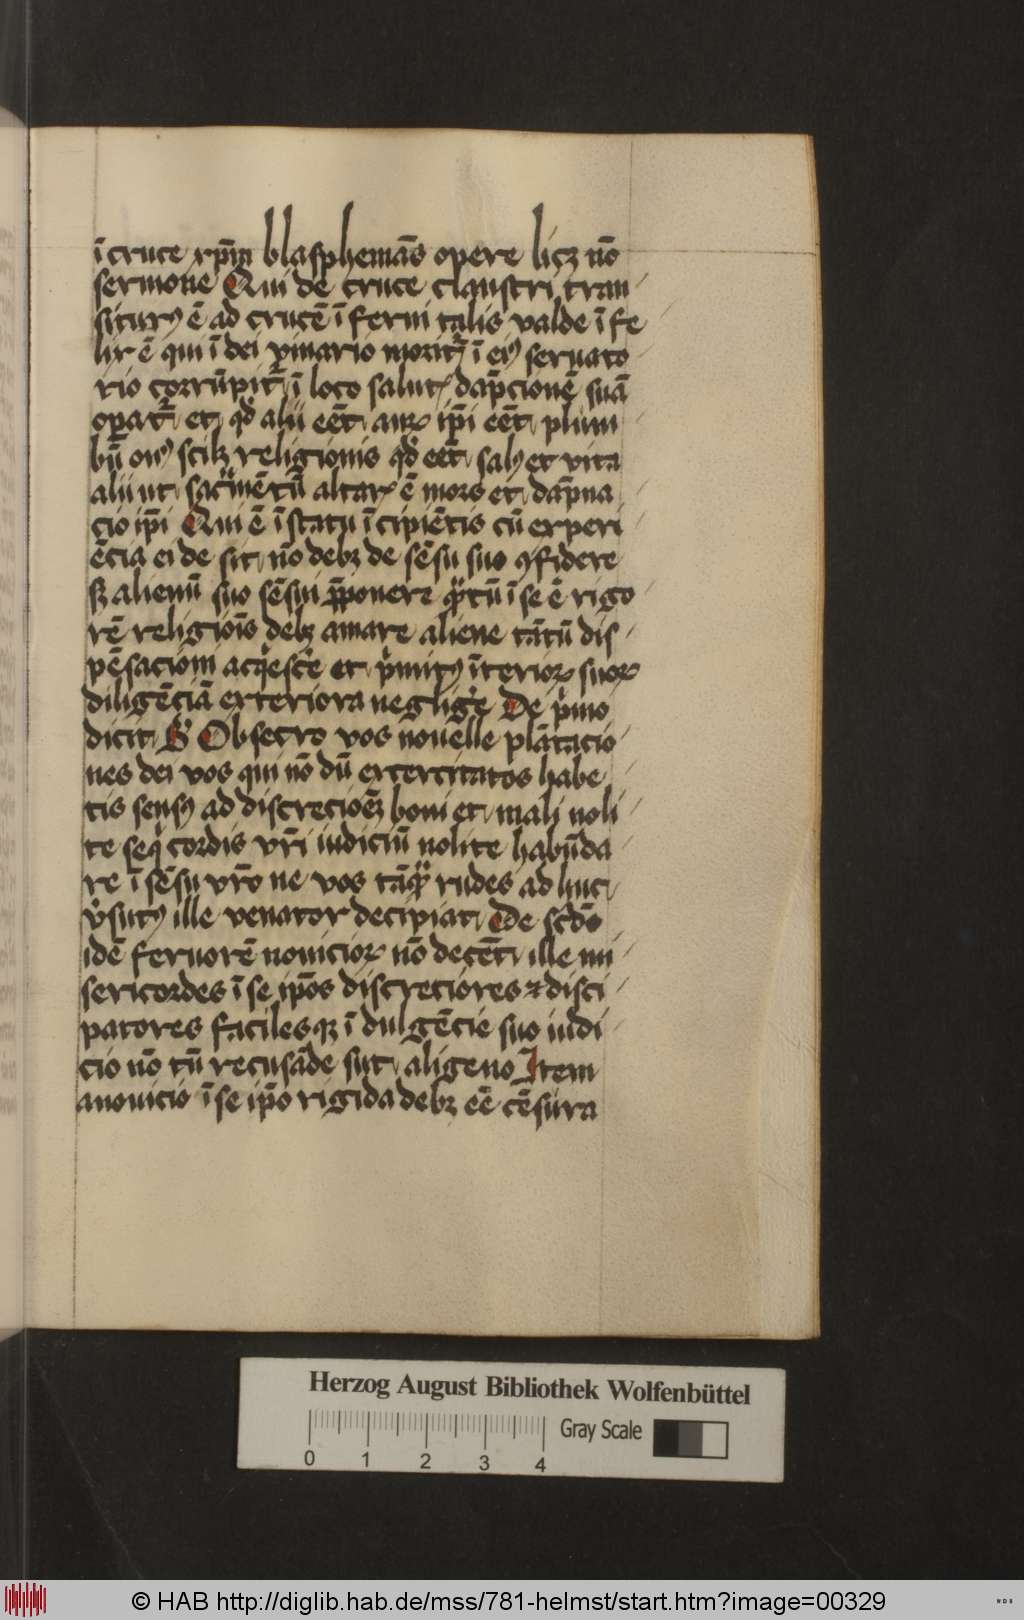 ī cruce xp̄m blasphemās opere licꝫ nō
sermone Qui de cruce claustri tran
siturꝰ ē ad crucē īferni talis valde īfe
lix ē qui ī dei vinario moritᷣ ī eiꝰ seruato
rio corrūpitᷣ ī loco salutꝭ dāpcionē suā
opatᷣ et qd alii eēt auꝝ ipi eēt plum
bū onꝰ scilꝫ religionis qd eēt salꝰ et vita
alii ut sacᷓmētū altarꝭ ē mors et dāpna
cio ipi Qui ē ī statu īcipiētis cū experi
ēcia ei de sit nō debꝫ de sēsu suo ꝯfidere
sꝫ alienū suo sēsui p̄ponere qᷓtū ī se ē rigo
rē religiōis debꝫ amare aliene tātū dis
pēsacioni acqͥescēe et pͥmitꝰ īterioꝝ suoꝝ
diligēciā exteriora negligēe De pͥmo
dicit B Obsecro vos nouelle plātacio
nes dei vos qui nō dū exercitatos habe
tis sensꝰ ad discrecioēꝫ boni et mali noli
te seqͥ cordis vr̄i iudiciū nolite habūda
re ī sēsu vr̄o ne vos tāqᷓ rudes ad huc
v̓sutꝰ ille venator decipiat De scd̄o
idē feruorē nouicioꝝ nō decēt ille mi
sericordes ī se ipōs discreciores ⁊ disci
patores facilesqꝫ ī dulgēcie suo iudi
cio nō tū recusāde sut aligeno Item
anouicio ī se ipō rigida debꝫ eē cēsura
Herzog August Bibliothek Wolfenbüttel
Gray Scale
0 1 2 3 4
© HAB http://diglib.hab.de/mss/781-helmst/start.htm?image=00329